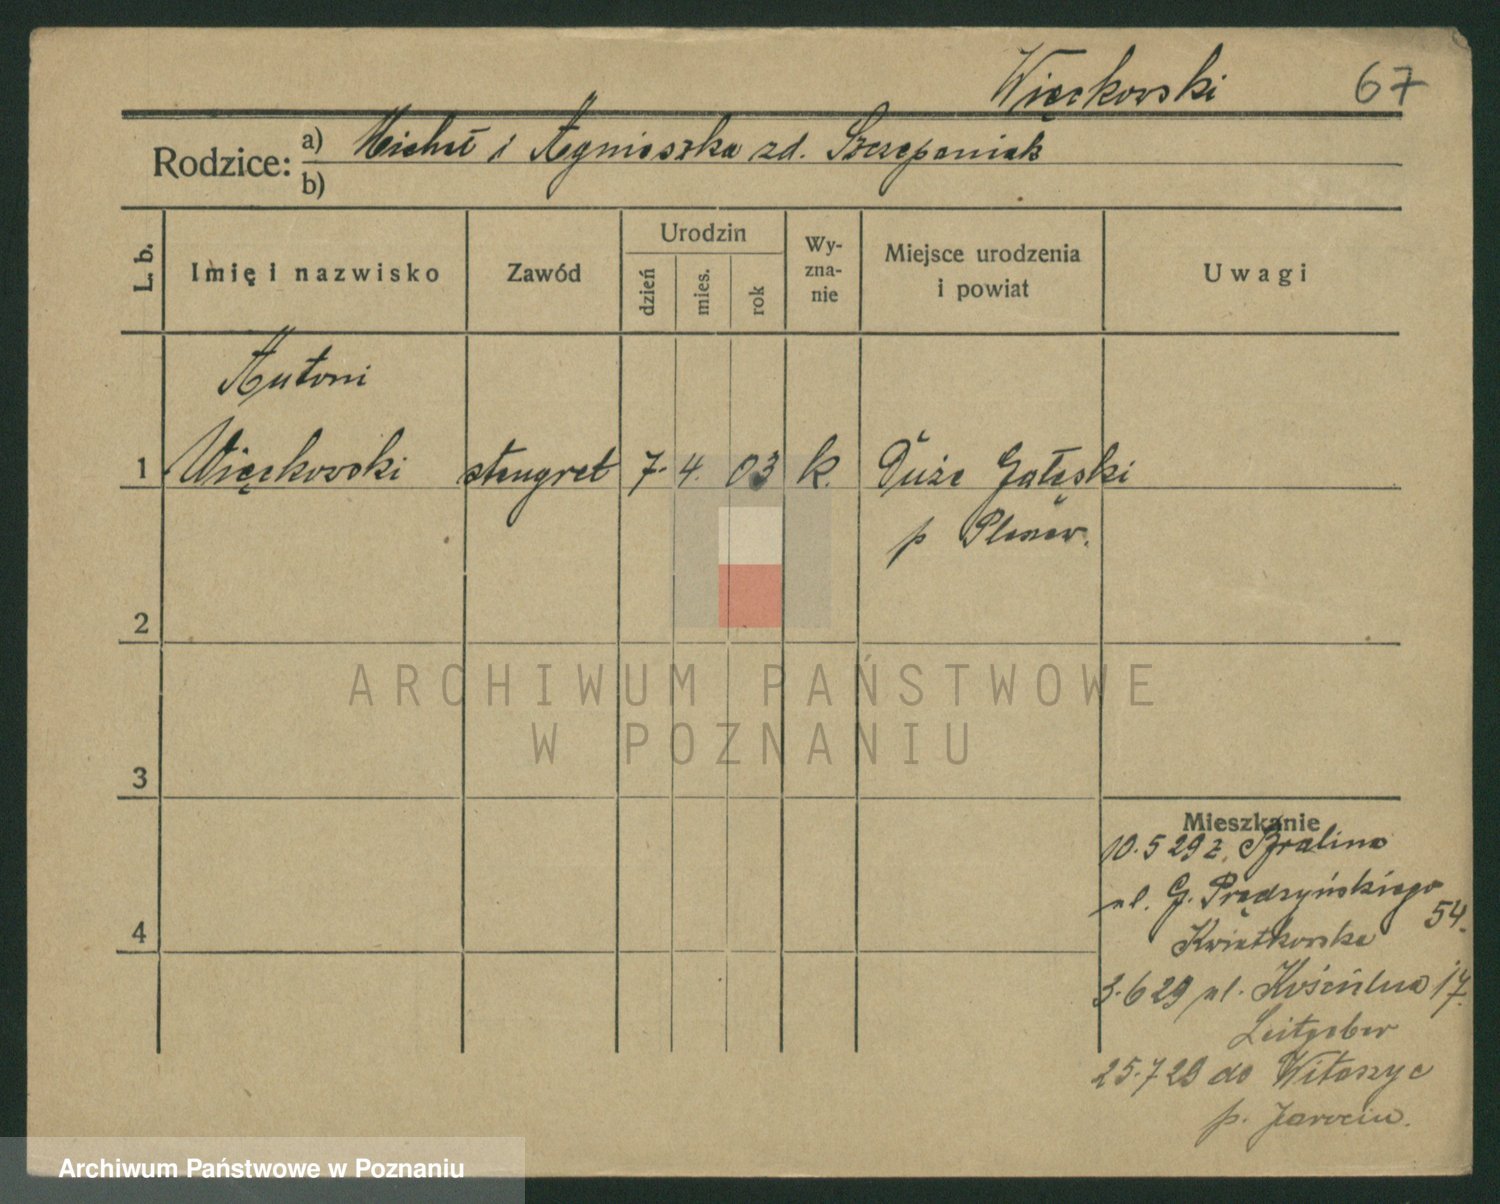 Więckowski 67
Rodzice:
a) Michał i Agnieszka zd. Szczepaniak
b)
L. b.
Imię i nazwisko
Zawód
Urodzin
dzień
mies.
rok
Wy-
zna-
nie
Miejsce urodzenia
i powiat
Uwagi
Antoni
1 Więckowski stangret 7. 4. 03 k. Duże Gałęski
p Plesew.
2
3
4
Mieszkanie
10.5 29 z. Bralino
ul. G. Prądzyńskiego 54.
Kwiatkowska
3.6 29 ul. Kościelna 17.
Leitgeber
25.7 29 do Witaszyc
p. Jarocin.
ARCHIWUM PAŃSTWOWE
W POZNANIU
Archiwum Państwowe w Poznaniu